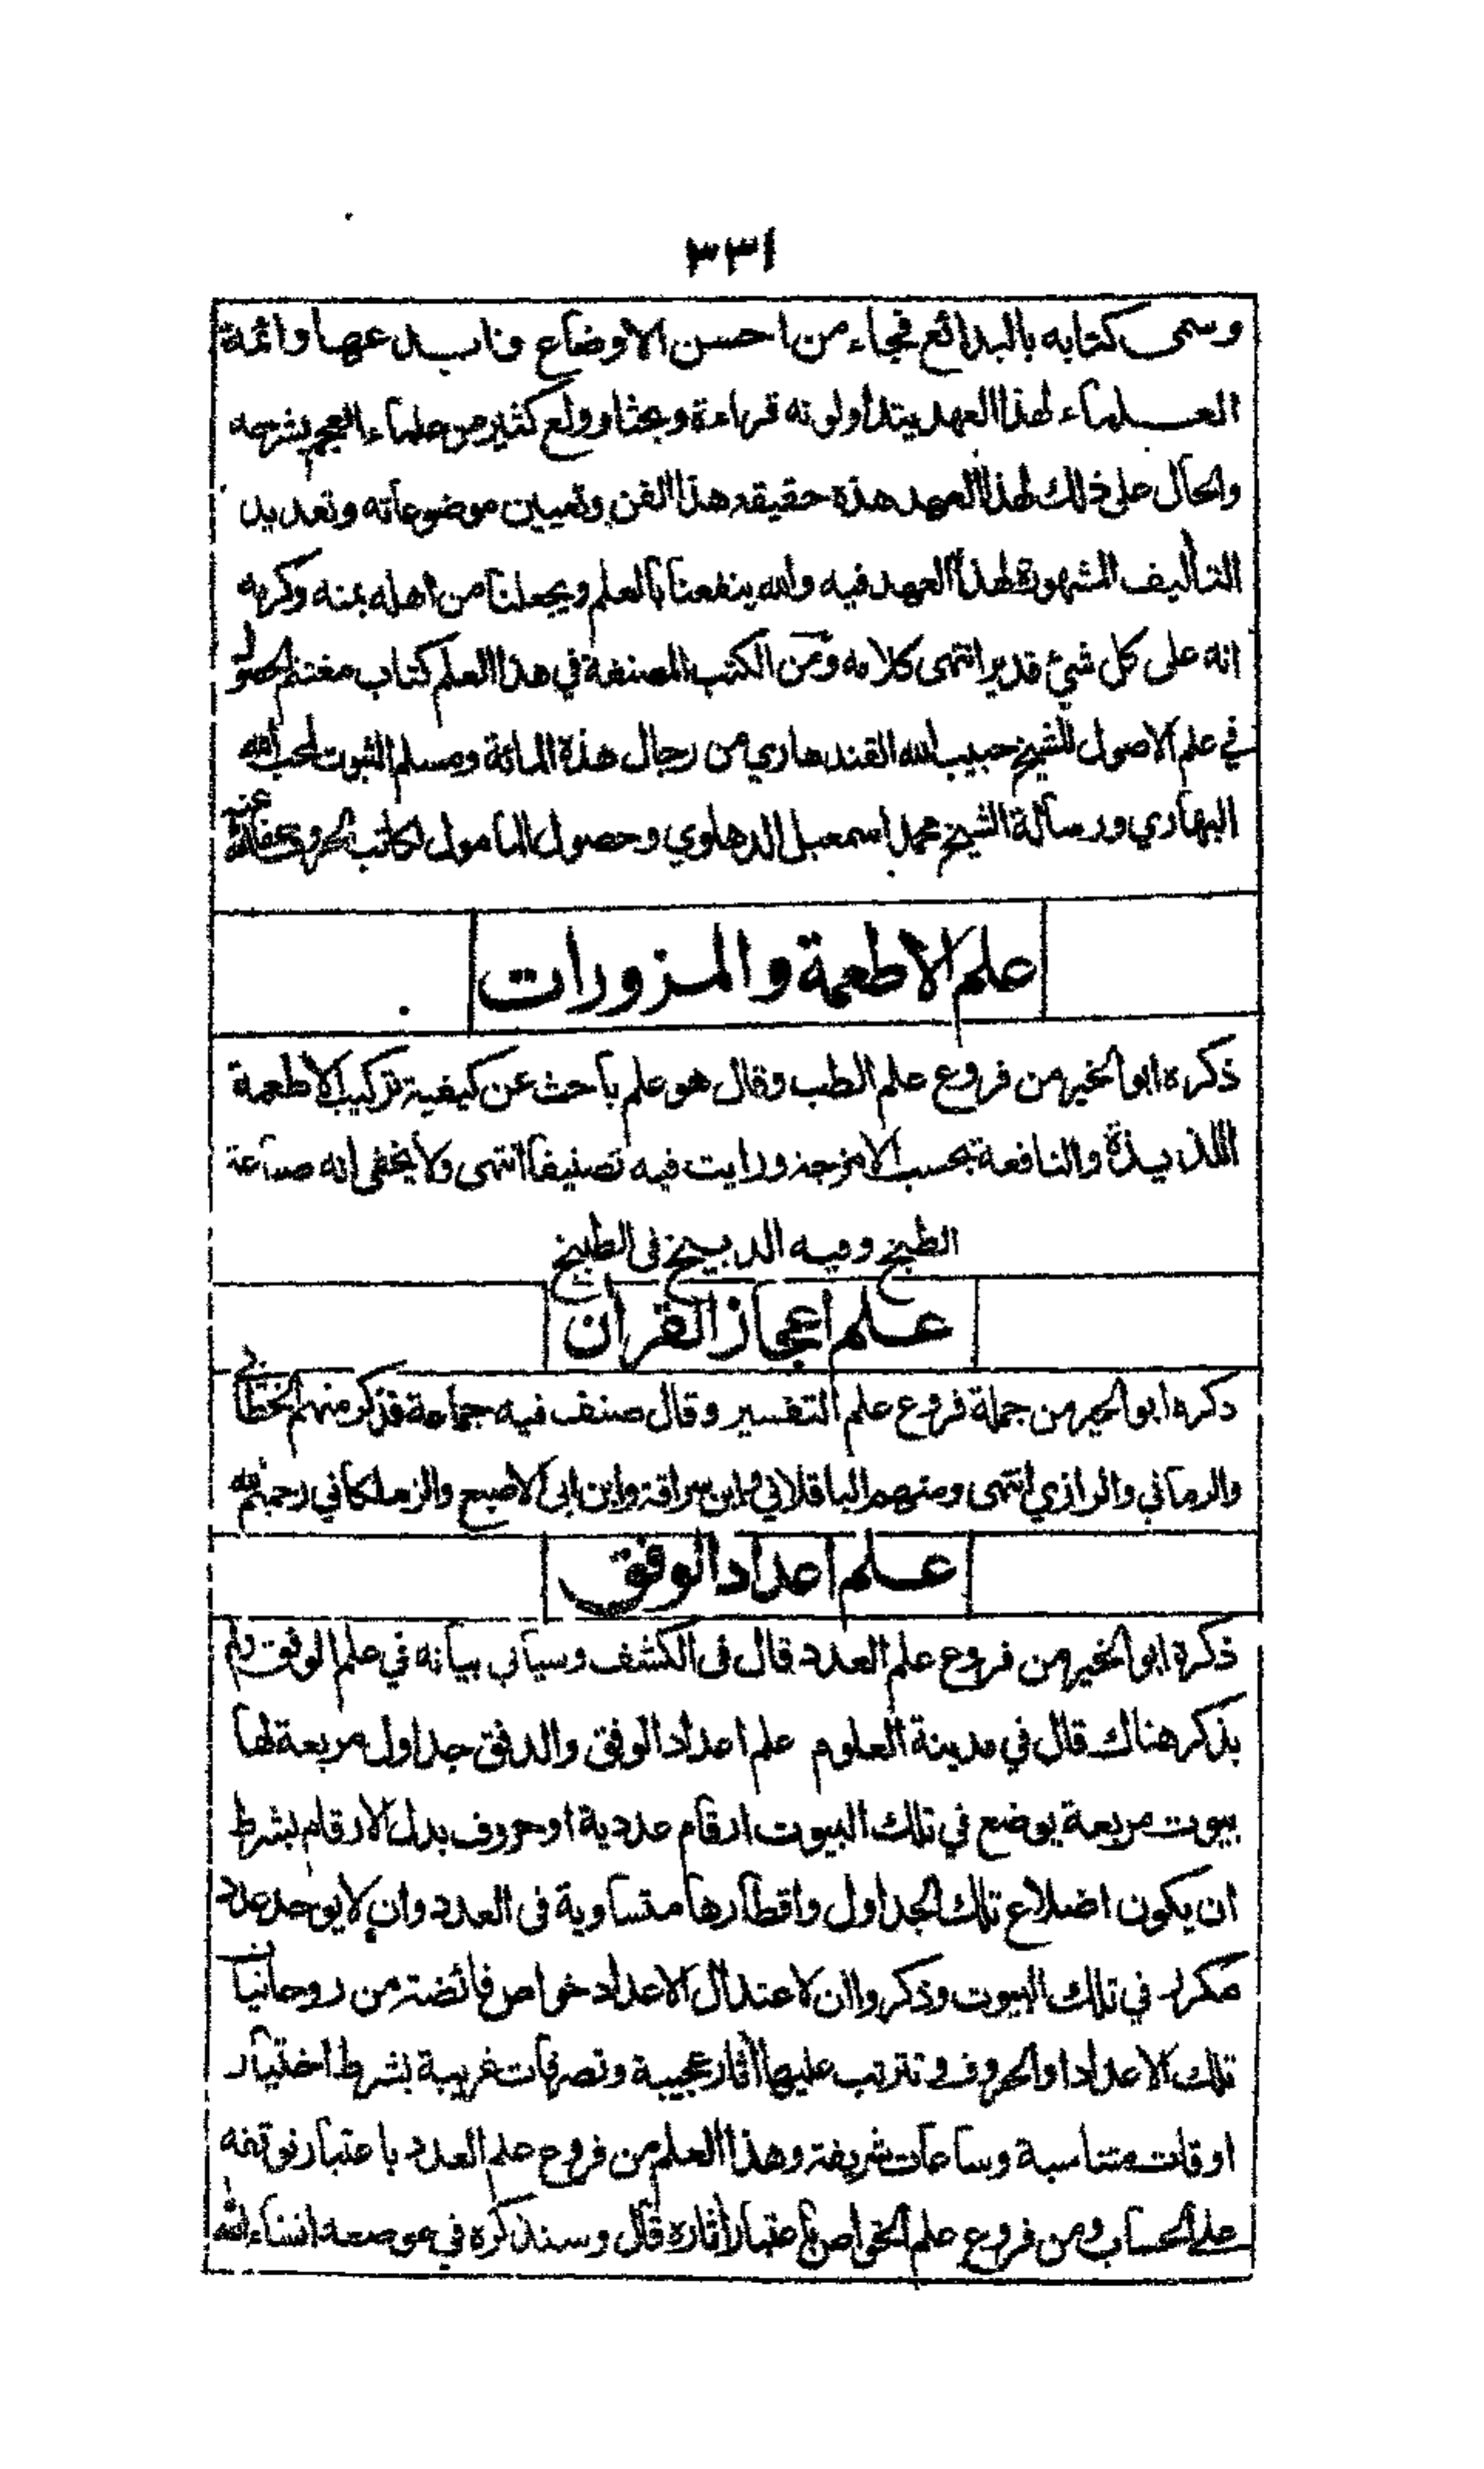 ٣٣١
وسمى كتابه بالبدائع فجاء من احسن الاوضاع وابدعها وائمة
العلماء لهذا العهد يتداولونه قراءة وبحثا وولع كثير من علماء العجم بشرحه
والحال على ذلك لهذا العهد هذه حقيقه هذا الفن وتعيين موضوعاته وتعديد
التأليف المشهورة لهذا العهد فيه والله ينفعنا بالعلم ويجعلنا من اهله بمنه وكرمه
انه على كل شئ قدير انتهى كلامه ومن الكتب المصنفة في هذا العلم كتاب مغتنم الحصول
في علم الاصول للشيخ حبيب الله القندهاري من رجال هذه المائة ومسلم الثبوت لمحب الله
البهاري ورسالة الشيخ محمد اسمعيل الدهلوي وحصول المامول لكاتب الحروف عفا الله عنه
علم الاطعمة والمزورات
ذكره ابو الخير من فروع علم الطب وقال هو علم باحث عن كيفية تركيب الاطعمة
اللذيذة والنافعة بحسب الامزجة ورايت فيه تصنيفا انتهى ولا يخفى انه صناعة
الطبخ وفيه الدبيخ فى الطبيخ
علم اعجاز القران
ذكره ابو الخير من جملة فروع علم التفسير وقال صنف فيه جماعة فذكر منهم الخطابي
والرماني والرازي انتهى ومنهم الباقلاني وابن سراقة وابن ابي الاصبع والزملكاني رحمهم الله
علم اعداد الوفق
ذكره ابو الخير من فروع علم العدد قال فى الكشف وسياتي بيانه في علم الوفق ولم
يذكر هناك قال في مدينة العلوم علم اعداد الوفق والوفق جداول مربعة لها
بيوت مربعة يوضع في تلك البيوت ارقام عددية او حروف بدل الارقام بشرط
ان يكون اضلاع تلك الجداول واقطارها متساوية فى العدد وان لا يوجد عدد
مكرر في تلك البيوت وذكروا ان لاعتدال الاعداد خواص فائضة من روحانيات
تلك الاعداد او الحروف وتترتب عليها اثار عجيبة وتصرفات غريبة بشرط اختيار
اوقات متناسبة وساعات شريفة وهذا العلم من فروع علم العدد باعتبار توقفه
على الحساب ومن فروع علم الخواص باعتبار اثاره قال وسنذكره في موضعه انشاء الله